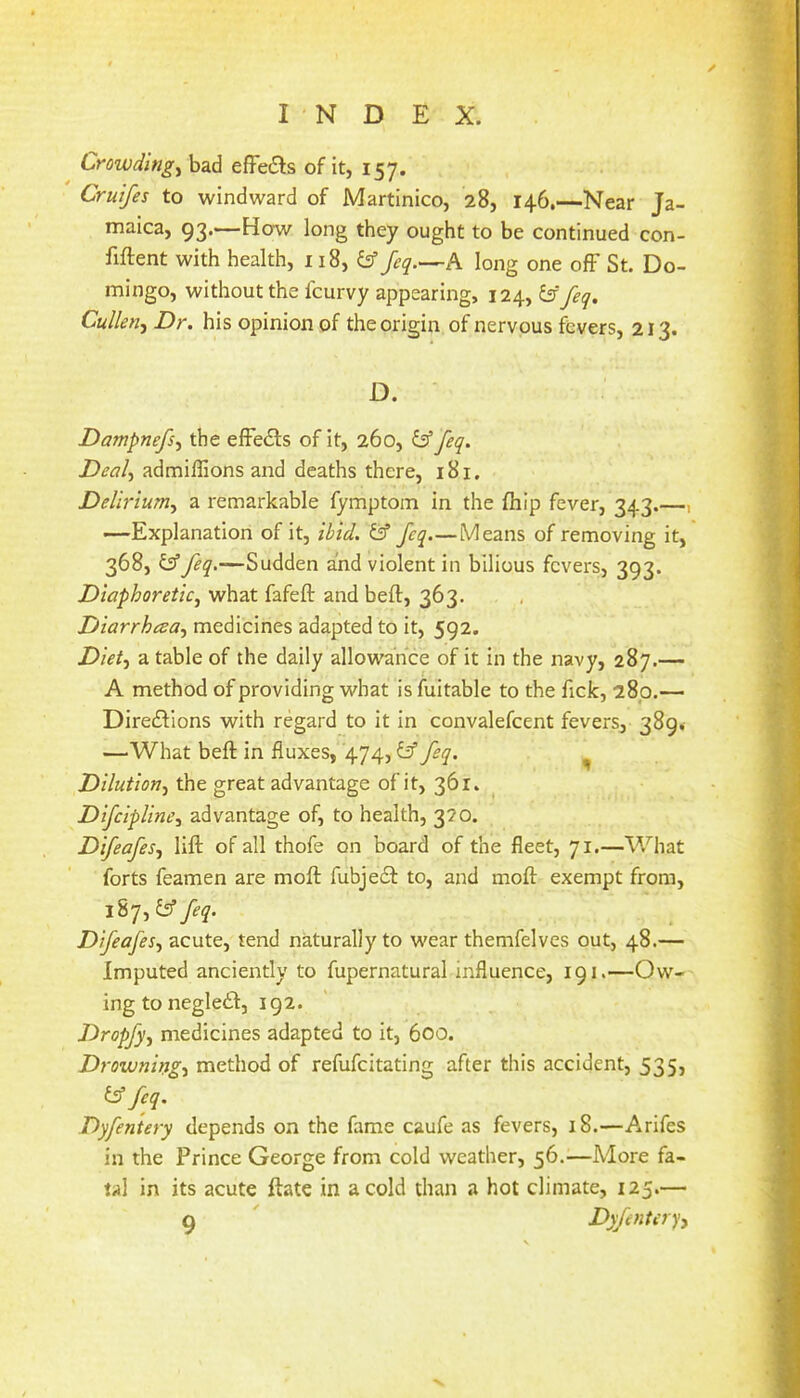 INDEX.
Crowding, bad effects of it, 157.
Cruiſes to windward of Martinico, 28, 146.—Near Ja-
maica, 93.—How long they ought to be continued con-
ſiſtent with health, 118, & ſeq.—A long one off St. Do-
mingo, without the ſcurvy appearing, 124, & ſeq.
Cullen, Dr. his opinion of the origin of nervous fevers, 213.
D.
Dampneſs, the effects of it, 260, & ſeq.
Deal, admiſſions and deaths there, 181.
Delirium, a remarkable ſymptom in the ſhip fever, 343.—
—Explanation of it, ibid. & ſeq.—Means of removing it,
368, & ſeq.—Sudden and violent in bilious fevers, 393.
Diaphoretic, what ſafeſt and beſt, 363.
Diarrhœa, medicines adapted to it, 592.
Diet, a table of the daily allowance of it in the navy, 287.—
A method of providing what is ſuitable to the ſick, 280.—
Directions with regard to it in convaleſcent fevers, 389.
—What beſt in fluxes, 474, & ſeq.
Dilution, the great advantage of it, 361.
Diſcipline, advantage of, to health, 320.
Diſeaſes, liſt of all thoſe on board of the fleet, 71.—What
ſorts ſeamen are moſt ſubject to, and moſt exempt from,
187, & ſeq.
Diſeaſes, acute, tend naturally to wear themſelves out, 48.—
Imputed anciently to ſupernatural influence, 191.—Ow-
ing to neglect, 192.
Dropſy, medicines adapted to it, 600.
Drowning, method of reſuſcitating after this accident, 535,
& ſeq.
Dyſentery depends on the ſame cauſe as fevers, 18.—Ariſes
in the Prince George from cold weather, 56.—More fa-
tal in its acute ſtate in a cold than a hot climate, 125.—
9 Dyſentery,